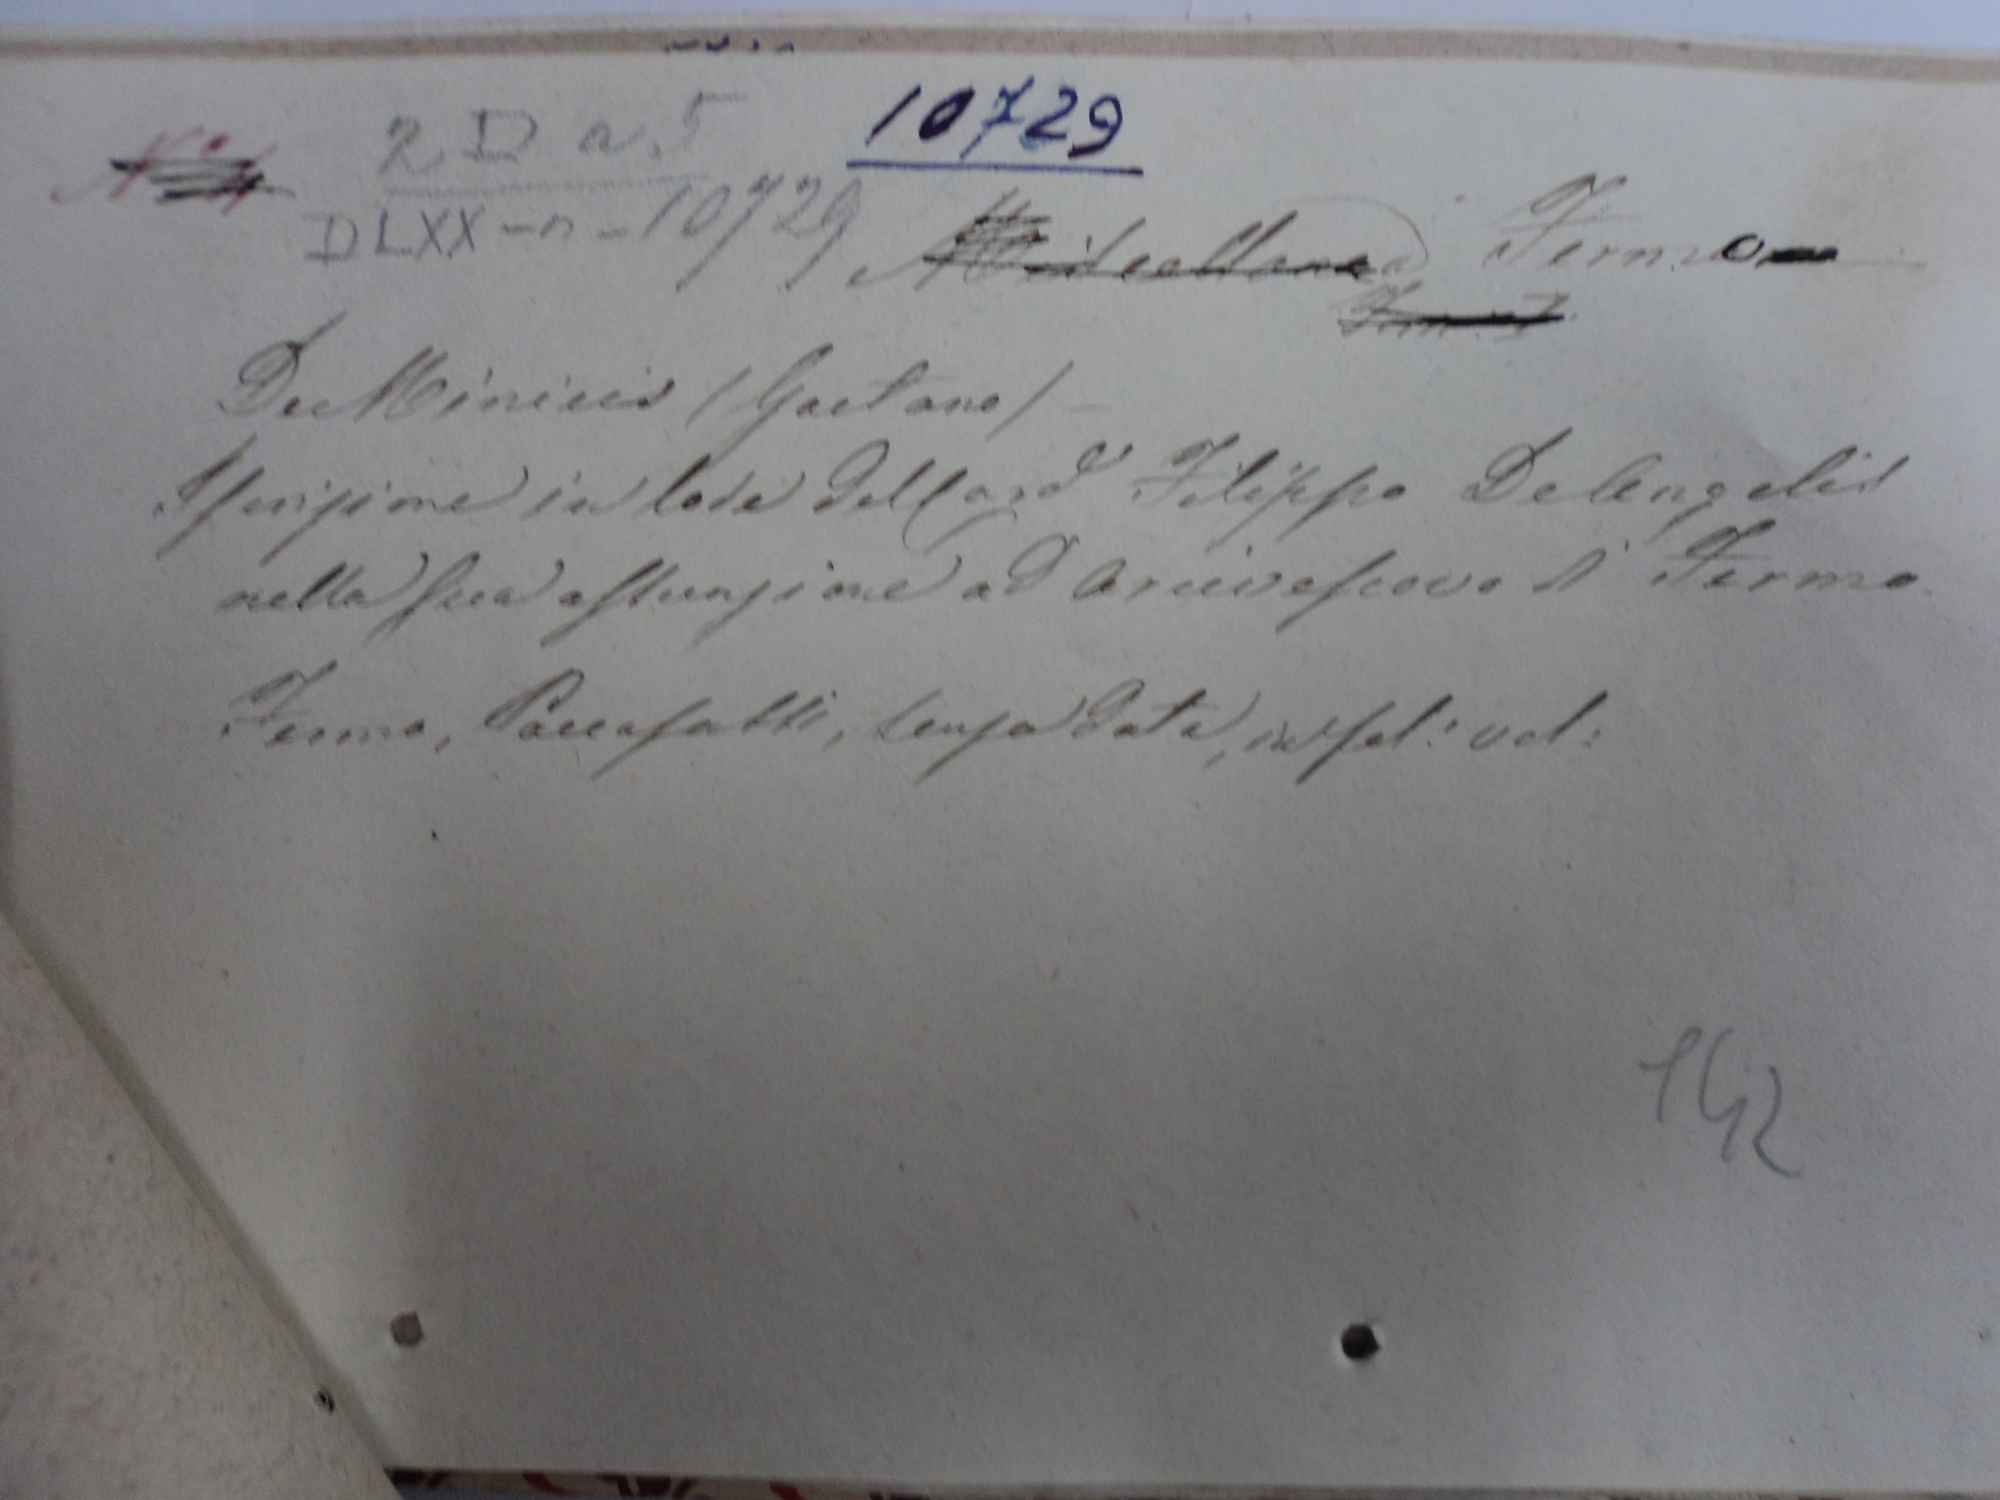 2 D a. 5
10729
DLXX - n - 10729
Miscellanea
Fermo
De Minicis (Gaetano)
Iscrizione in lode del Card. Filippo De Angelis
nella sua assunzione ad Arcivescovo di Fermo
Fermo, Paccasassi, senza data, in fol: vol:
142